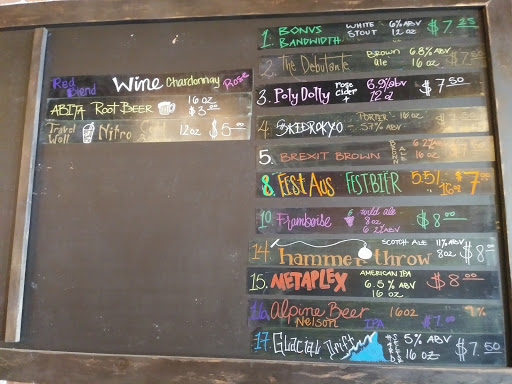 Red Blend Wine Chardonnay Rose
ABITA Root Beer 16 oz $3.00
Travel Well Nitro 12oz $5.00
1. Bonus Bandwidth White Stout 6% ABV 12 oz $7.25
2. The Debutante Brown Ale 6.8% ABV 16 oz
3. Poly Dolly Rose Cider + 6.9% abv 12 oz $7.50
4. Skidrokyo Porter 16 oz 5.7% ABV
5. Brexit Brown Brown Ale 16 oz
8. Fest Aus Festbier 5.5% 16oz $7.00
10. Framboise wild ale 8oz 6.2% ABV $8.00
14. hammer throw Scotch Ale 11% ABV 8oz $8.00
15. Metaplex American IPA 6.5% ABV 16 oz $8.00
16. Alpine Beer Nelson IPA 16oz 7% $7.00
17. Glacial Drift 5% ABV 16 oz $7.50